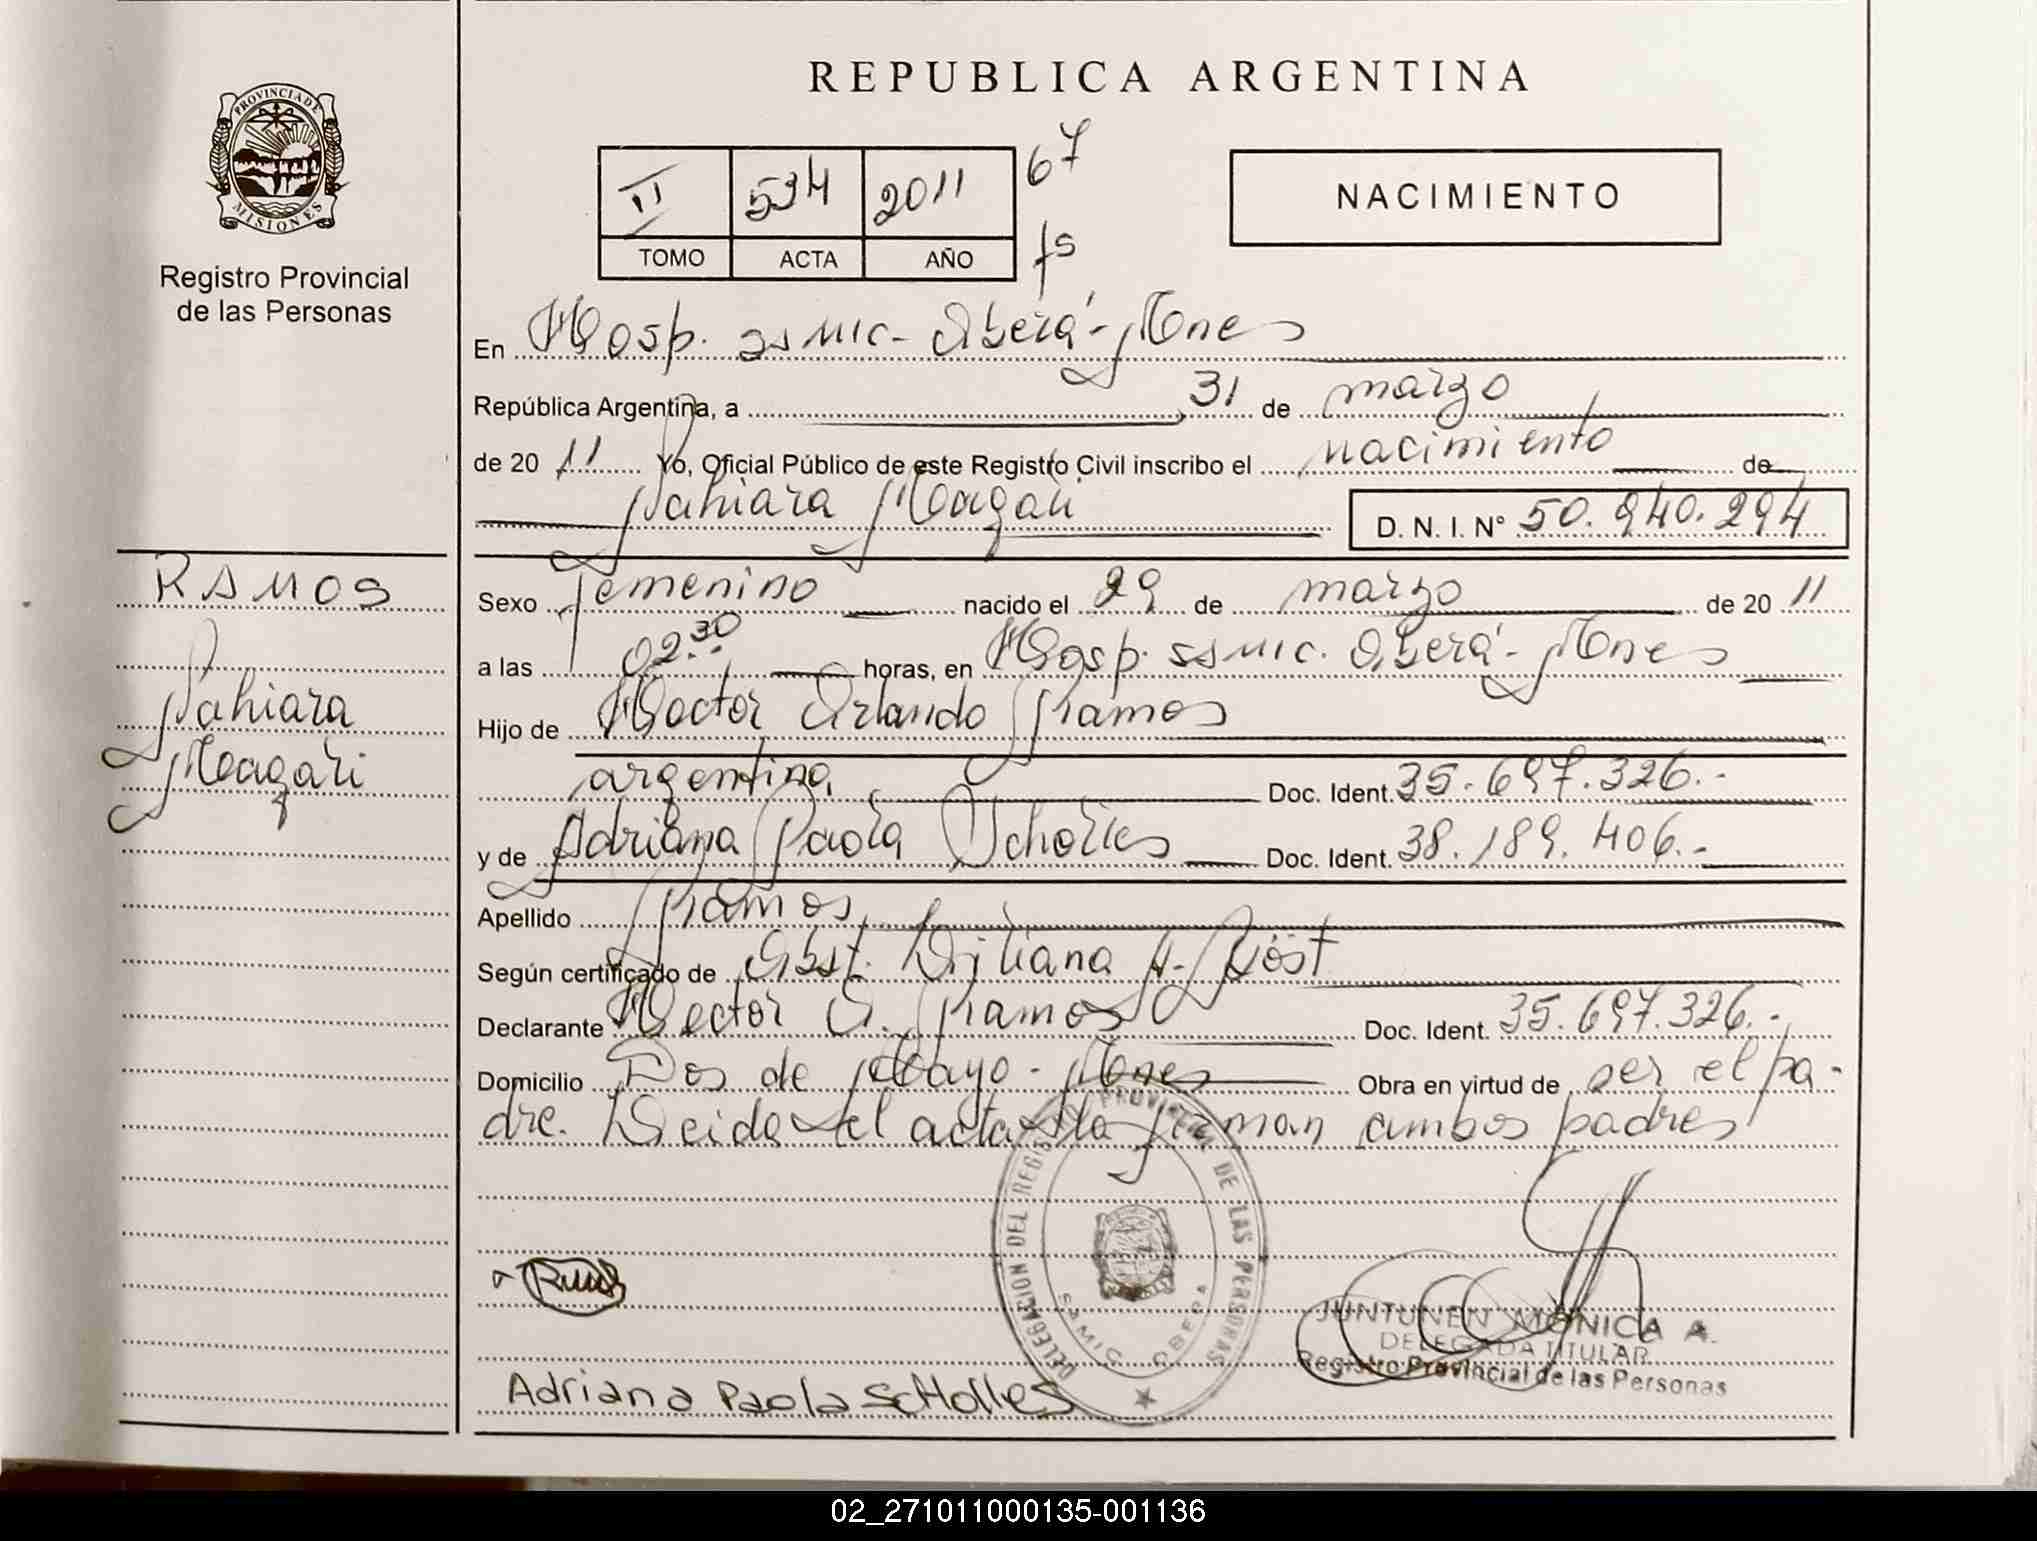 PROVINCIA DE
MISIONES
Registro Provincial
de las Personas
REPUBLICA ARGENTINA
II 534 2011 67
TOMO ACTA AÑO fs
NACIMIENTO
En Hosp. SAMIC - Oberá - Mnes
República Argentina, a 31 de marzo
de 20 11 Yo, Oficial Público de este Registro Civil inscribo el nacimiento de
Yahiara Magali
D. N. I. Nº 50.940.294
RAMOS
Yahiara
Magali
Sexo femenino nacido el 29 de marzo de 20 11
a las 02.30 horas, en Hosp. SAMIC. Oberá - Mnes
Hijo de Hector Orlando Ramos
argentina Doc. Ident. 35.697.326.-
y de Adriana Paola Scholles Doc. Ident. 38.189.406.-
Apellido Ramos
Según certificado de Obst. Liliana A. Jöst
Declarante Hector O. Ramos Doc. Ident. 35.697.326.-
Domicilio Dos de Mayo - Mnes Obra en virtud de ser el pa-
dre. Leida el acta la firman ambos padres
DELEGACION DEL REGISTRO PROVINCIAL DE LAS PERSONAS
SAMIC OBERA
JUNTUNEN MONICA A.
DELEGADA TITULAR
Registro Provincial de las Personas
Adriana Paola Scholles
02_271011000135-001136